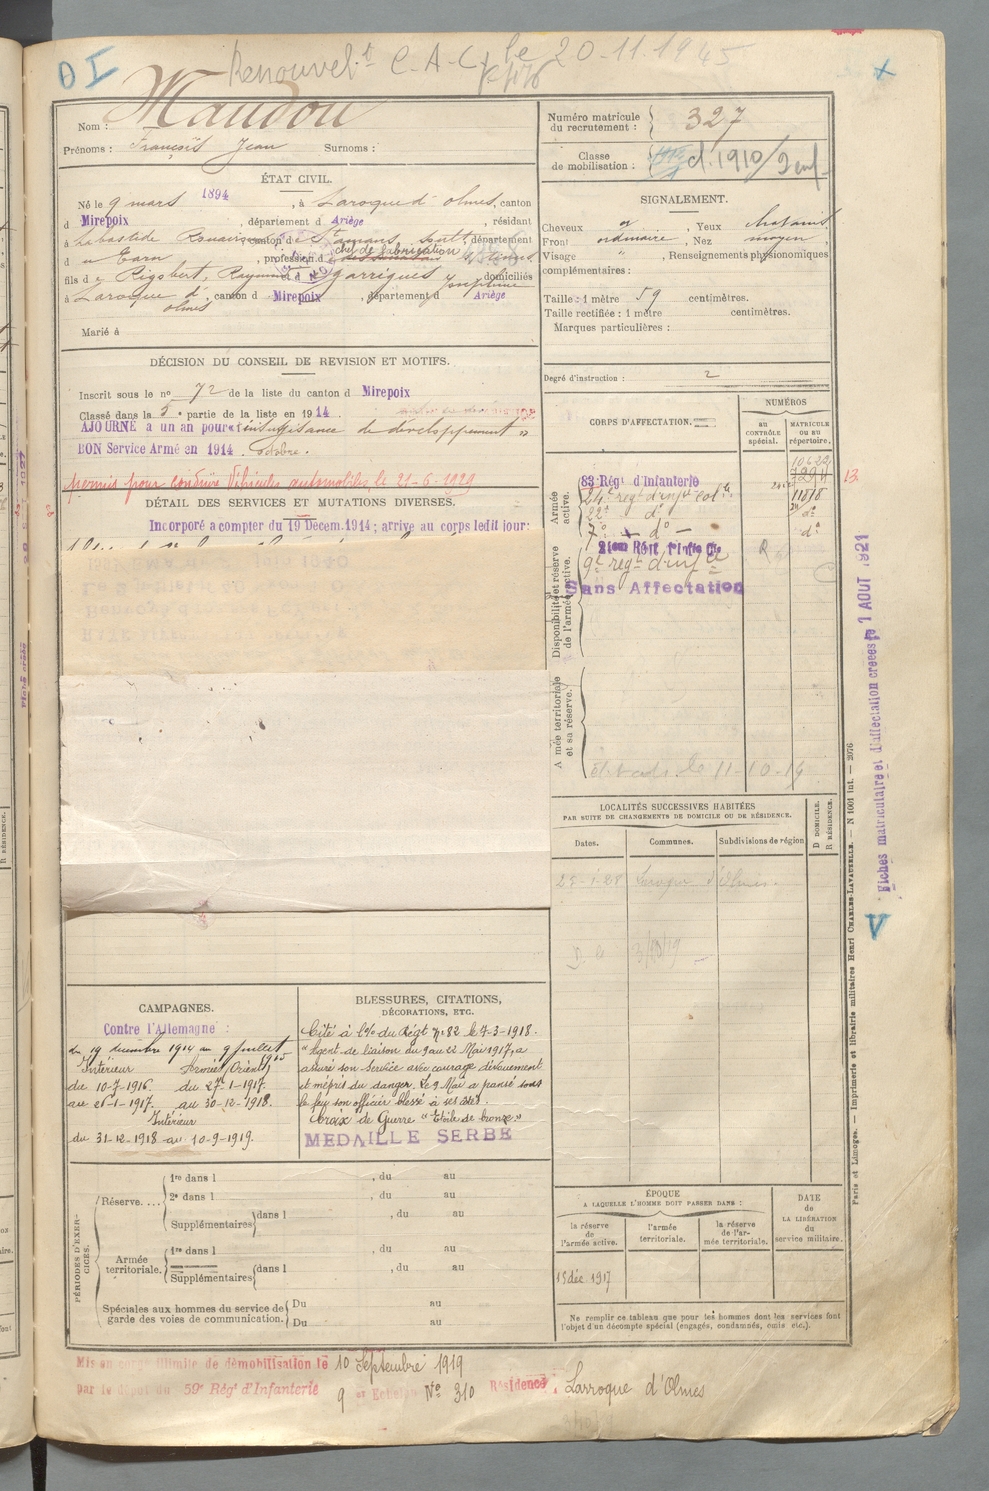 Renouvel.t C-A-C, le 20-11-1945
Nom : Maudou
Prénoms : François Jean Surnoms :
ÉTAT CIVIL.
Né le 9 mars 1894, à Laroque d'olmes, canton
d Mirepoix, département d Ariège, résidant
à Labastide canton de St amans soult, département
du Tarn, profession d chef de fabrication
fils de Rigobert, Raymond et de garrigues Joséphine domiciliés
à Laroque d'olmes, canton d Mirepoix, département d Ariège
Marié à
DÉCISION DU CONSEIL DE REVISION ET MOTIFS.
Inscrit sous le no 72 de la liste du canton d Mirepoix
Classé dans la 5e partie de la liste en 1914.
AJOURNÉ à un an pour « insuffisance de développement »
BON Service Armé en 1914 octobre.
Permis pour conduire Véhicules automobiles, le 21-6-1929
DÉTAIL DES SERVICES ET MUTATIONS DIVERSES.
Incorporé a compter du 19 Décem. 1914 ; arrive au corps ledit jour:
CAMPAGNES.
Contre l'Allemagne :
du 19 décembre 1914 au 9 juillet 1915
Intérieur Armée (Orient)
du 10-7-1916. du 27-1-1917.
au 26-1-1917. au 30-12-1918.
Intérieur
du 31-12-1918 au 10-9-1919.
BLESSURES, CITATIONS,
DÉCORATIONS, ETC.
Cité à l'o/ du Régt no 82 le 7-3-1918.
"Agent de liaison du 9 au 22 Mai 1917, a
assuré son service avec courage dévouement
et mépris du danger. Le 9 Mai a pansé sous
le feu son officier blessé à ses côtés.
Croix de Guerre "Etoile de bronze."
MEDAILLE SERBE
PÉRIODES D'EXERCICES.
Réserve....
1re dans l , du au
2e dans l , du au
Supplémentaires dans l , du au
Armée territoriale.
1re dans l , du au
Supplémentaires dans l , du au
Spéciales aux hommes du service de garde des voies de communication.
Du au
Du au
Mis en congé illimité de démobilisation le 10 Septembre 1919
par le dépôt du 59e Rég' d'Infanterie 9 er Echelon No 310 Résidence, Larroque d'Olmes
Numéro matricule du recrutement : 327
Classe de mobilisation : d. 1910/2 enf
SIGNALEMENT.
Cheveux , Yeux chatains
Front ordinaire, Nez moyen
Visage " , Renseignements physionomiques
complémentaires :
Taille : 1 mètre 59 centimètres.
Taille rectifiée : 1 mètre centimètres.
Marques particulières :
Degré d'instruction : 2
CORPS D'AFFECTATION.
NUMÉROS
AU CONTRÔLE spécial.
MATRICULE OU AU répertoire.
Armée active.
83 Rég' d'Infanterie
24e régt d'inf. col.le 11818
22e do do
7o do do
Disponibilité et réserve de l'armée active.
9e régt d'inf.ie
Sans Affectation
Armée territoriale et sa réserve.
le 11-10-14
LOCALITÉS SUCCESSIVES HABITÉES
PAR SUITE DE CHANGEMENTS DE DOMICILE OU DE RÉSIDENCE.
Dates. Communes. Subdivisions de région D DOMICILE. R RÉSIDENCE.
25-1-28 Laroque d'Olmes.
ÉPOQUE
A LAQUELLE L'HOMME DOIT PASSER DANS :
la réserve de l'armée active.
l'armée territoriale.
la réserve de l'armée territoriale.
DATE de LA LIBÉRATION du service militaire.
15 déc 1917
Ne remplir ce tableau que pour les hommes dont les services font
l'objet d'un décompte spécial (engagés, condamnés, omis etc.).
Fiches matriculaire et d'affectation créées le 1 AOUT 1921
Paris et Limoges. — Imprimerie et librairie militaires Henri CHARLES-LAVAUZELLE. — N 1001 int. — 2076